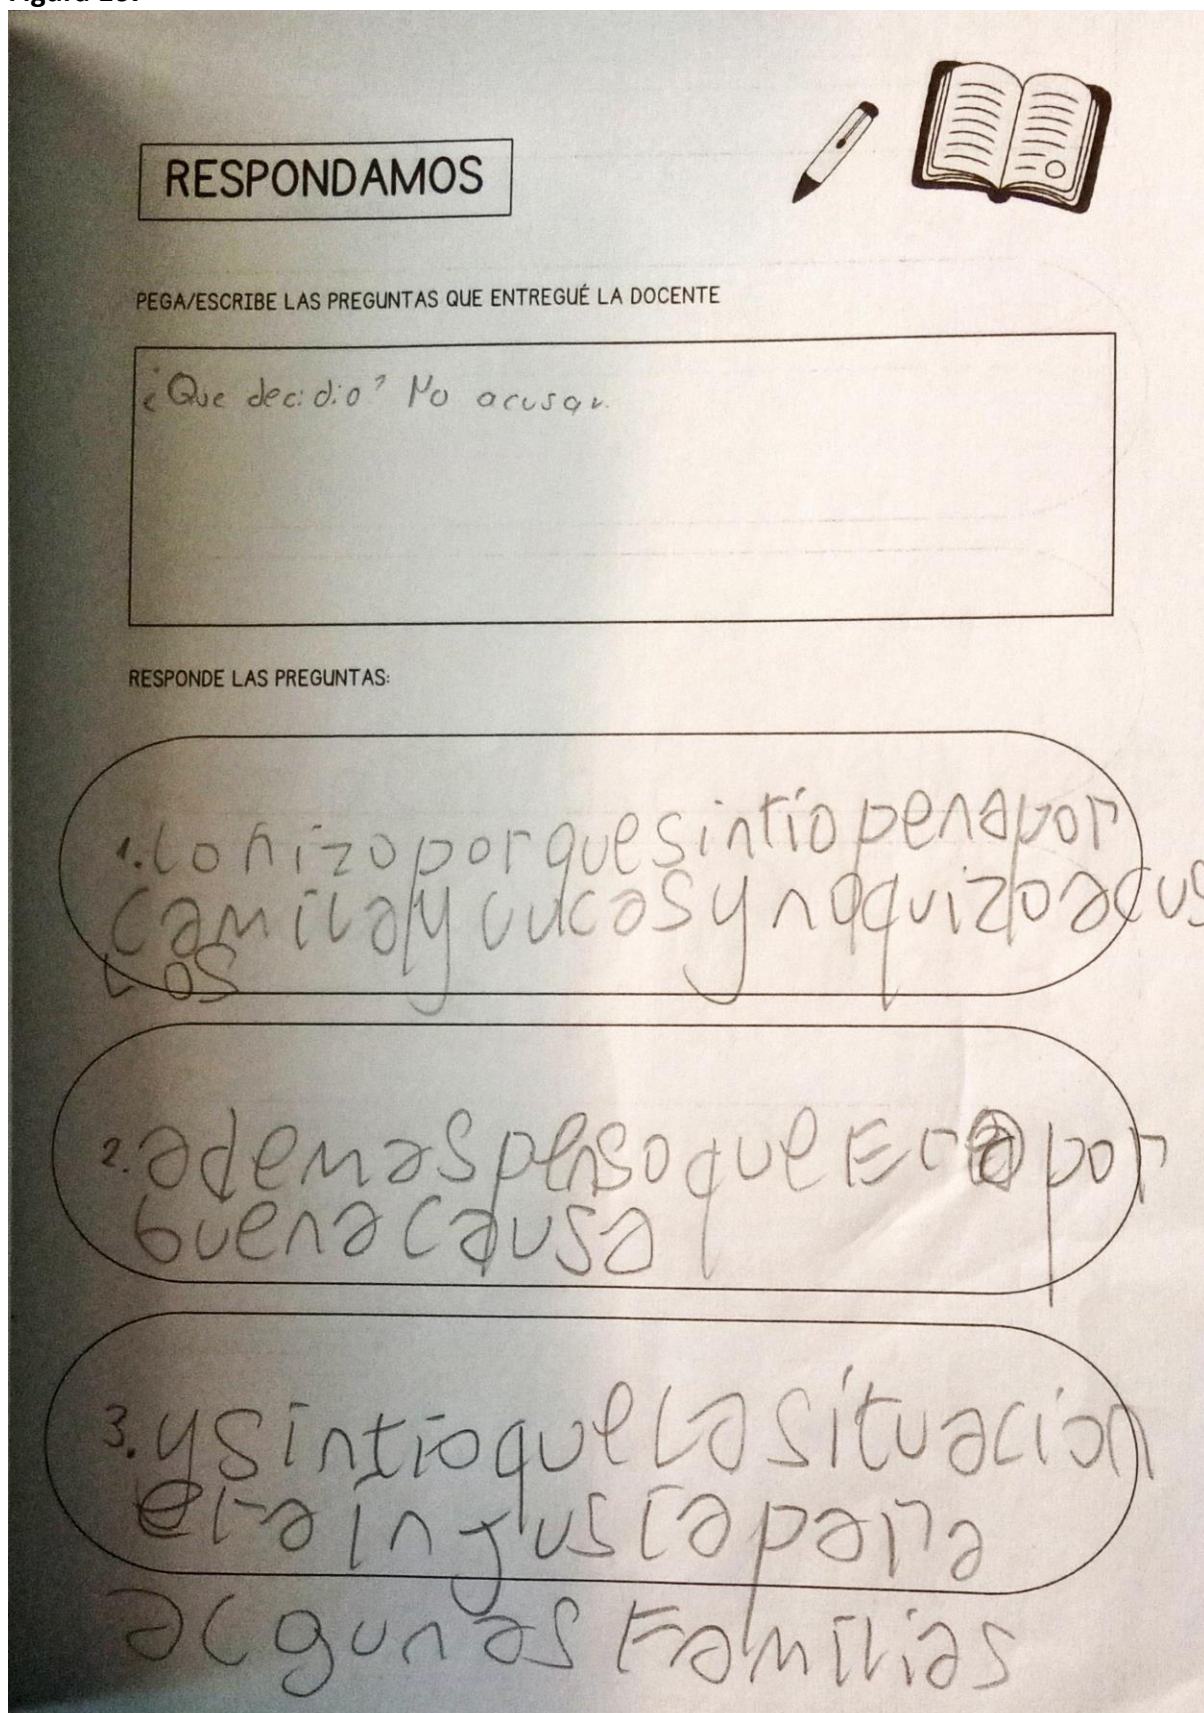 RESPONDAMOS
PEGA/ESCRIBE LAS PREGUNTAS QUE ENTREGUÉ LA DOCENTE
¿Que decidio? No acusar.
RESPONDE LAS PREGUNTAS:
1. lo hizo porque sintio pena por
Camila y Lucas y no quizo acus
Los
2. ademas penso que Era por
buena causa
3. y sintio que la situacion
era injusta para
algunas Familias